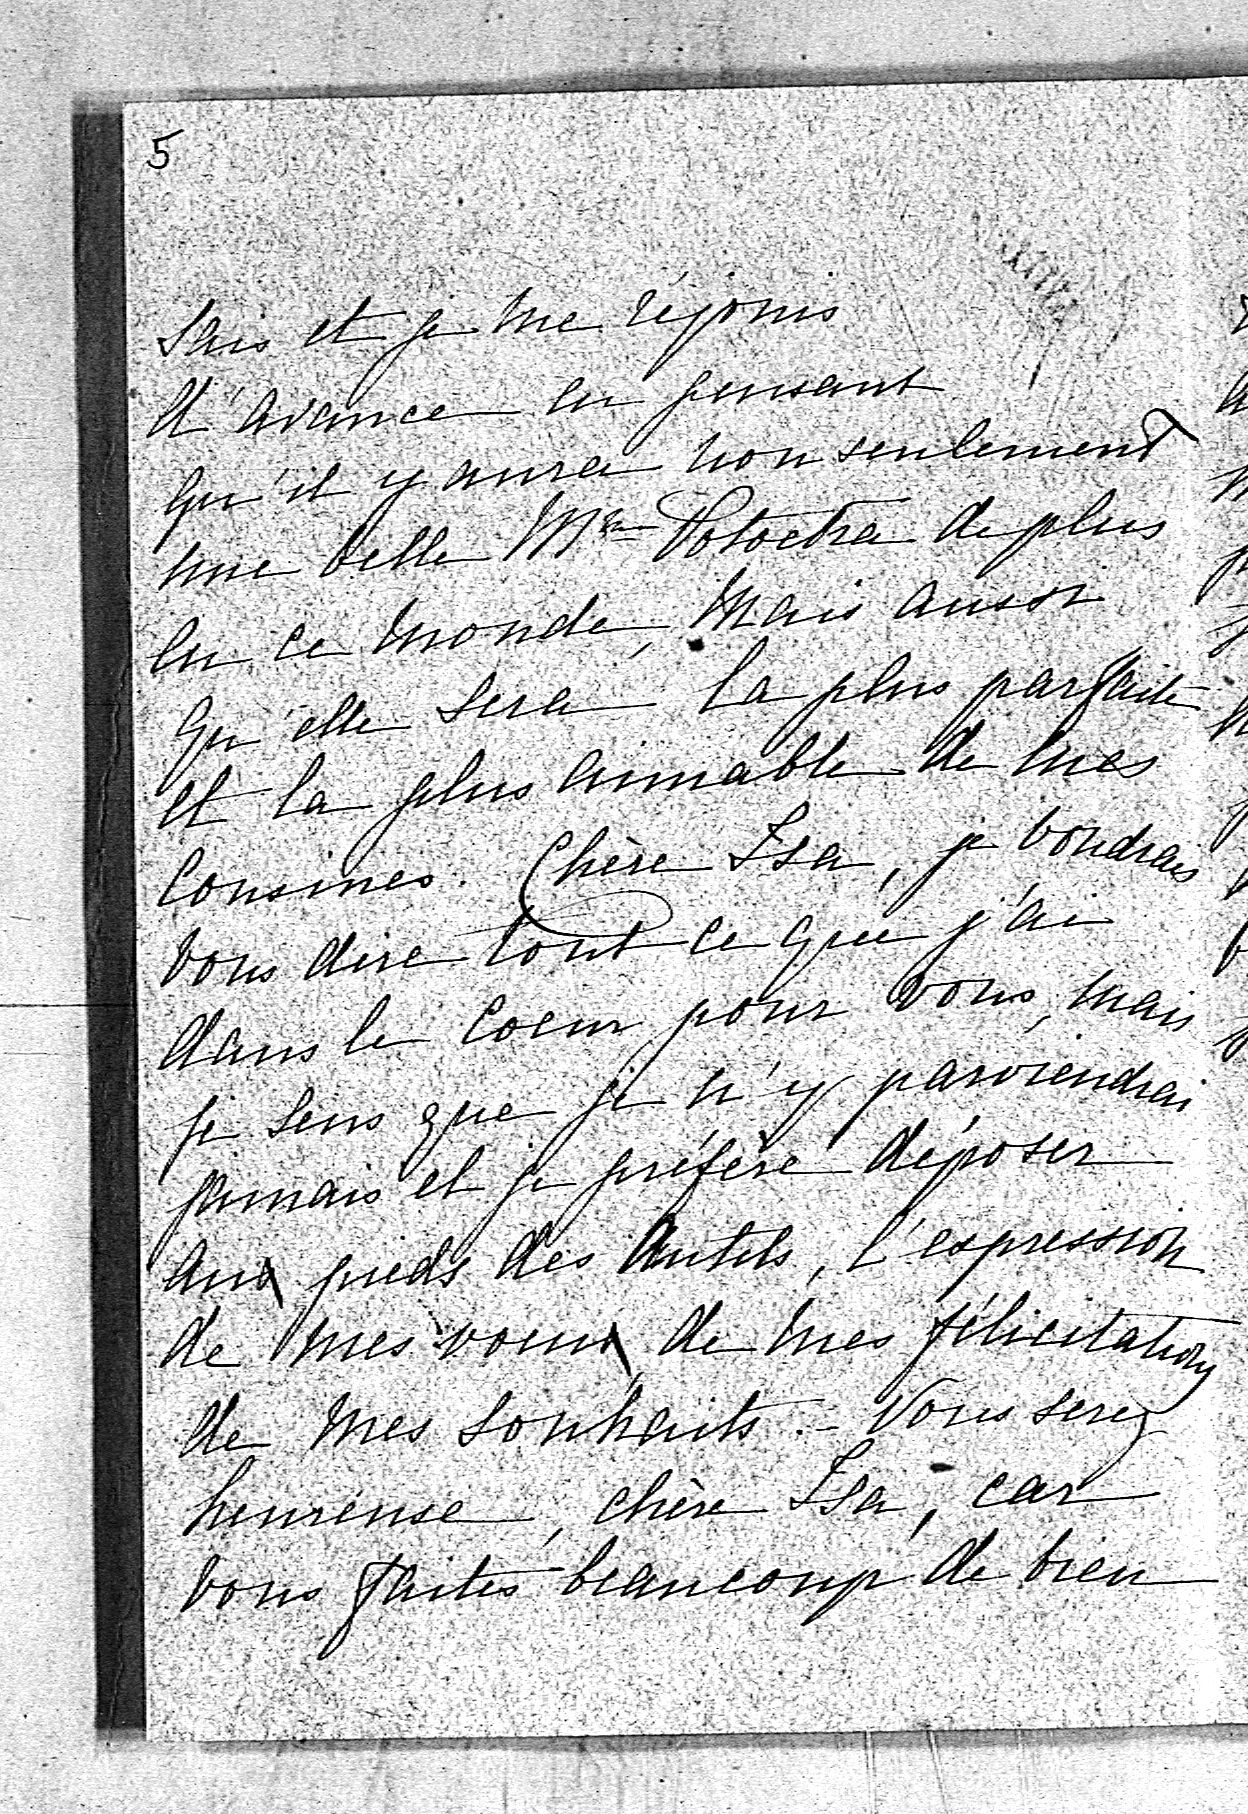 5
sais et je me réjouis
d'avance en pensant
qu'il y aura non seulement
une belle Mme Potocka de plus
en ce monde, mais aussi
qu'elle sera la plus parfaite
et la plus aimable de mes
cousines. Chère Isa, je voudrais
vous dire tout ce que j'ai
dans le coeur pour vous, mais
je sens que je n'y parviendrai
jamais et je préfère déposer
aux pieds des autels, l'expression
de mes voeux de mes félicitations
de mes souhaits. – Vous serez
heureuse, chère Isa, car
vous faites beaucoup de bien